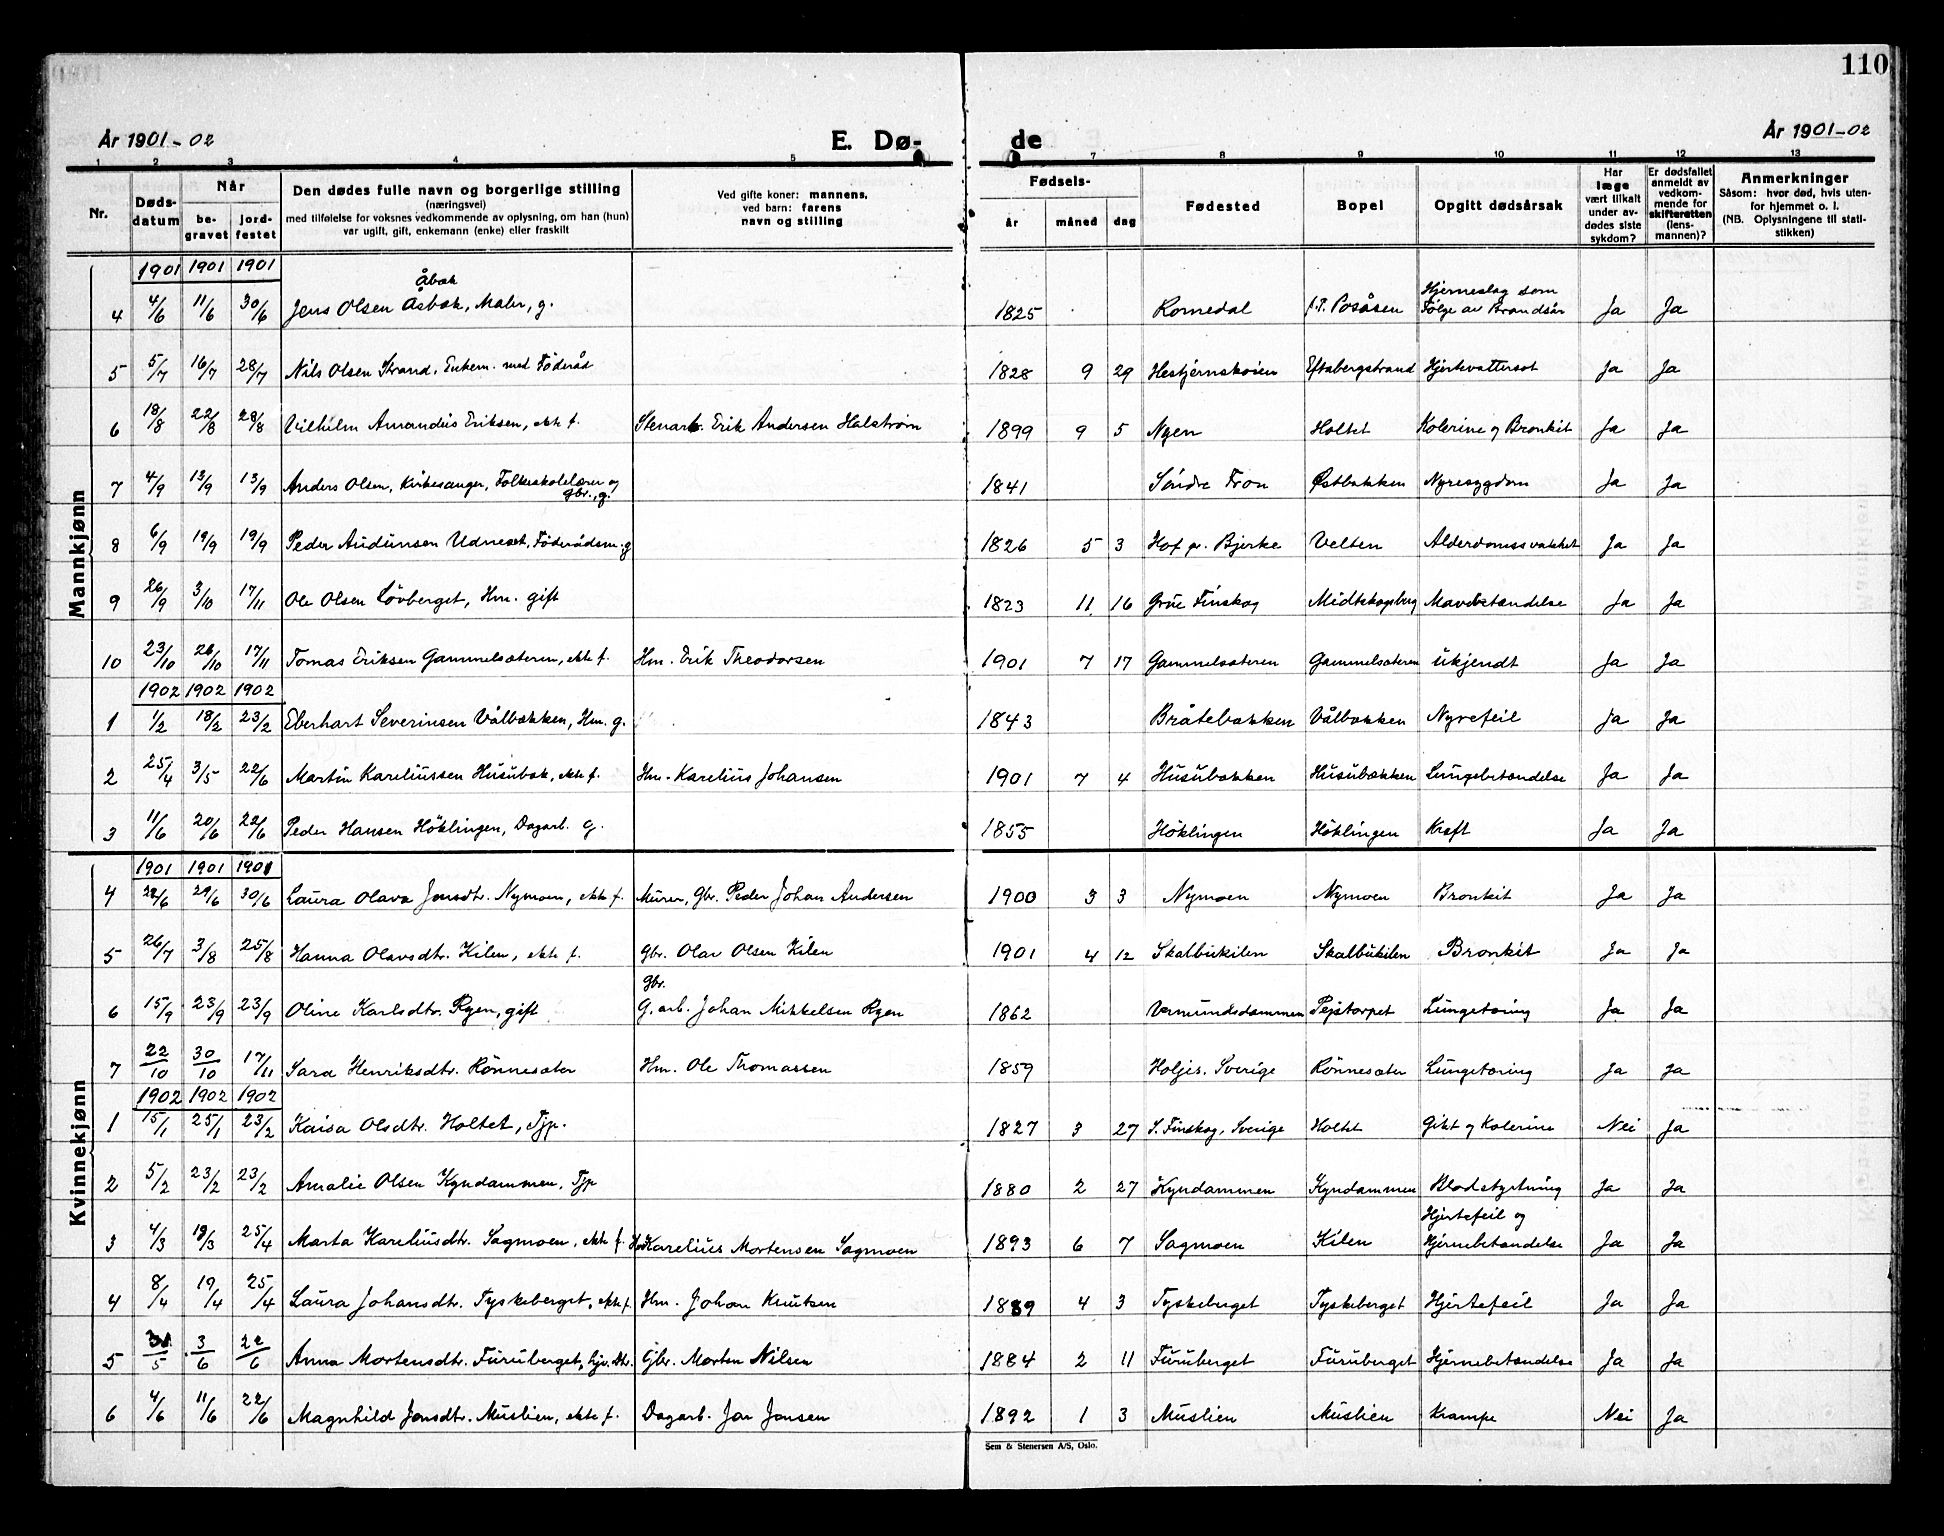 110
År 1901-02
E. Dø-
de
År 1901-02
1 2 3 4 5 7 8 9 10 11 12 13
Nr.
Døds-
datum
Når
be-
gravet
jord-
festet
Den dødes fulle navn og borgerlige stilling
(næringsvei)
med tilføielse for voksnes vedkommende av oplysning, om han (hun)
var ugift, gift, enkemann (enke) eller fraskilt
Ved gifte koner: mannens,
ved barn: farens
navn og stilling
Fødsels-
år måned dag
Fødested
Bopel
Opgitt dødsårsak
Har
læge
vært tilkalt
under av-
dødes siste
sykdom?
Er dødsfallet
anmeldt av
vedkom-
mende for
skifteretten
(lens-
mannen)?
Anmerkninger
Såsom: hvor død, hvis uten-
for hjemmet o. l.
(NB. Oplysningene til stati-
stikken)
Mannkjønn
1901 1901 1901
Åbæk
Hjerneslag som
4 4/6 11/6 30/6 Jens Olsen Åsbæk, Maler, g. 1825 Romedal Posåsen Følge av Brandsår Ja Ja
5 5/7 16/7 28/7 Nils Olsen Strand, Enkem. med Föderåd 1828 9 29 Hestjernskoien Eftabergstrand Hjertevattersot Ja Ja
6 18/8 22/8 28/8 Vilhelm Amandus Eriksen, ekte f. Stenarb. Erik Andersen Halstrøm 1899 9 5 Nyen Holtet Kolerine og Bronkit Ja Ja
7 4/9 13/9 13/9 Anders Olsen, Kirkesanger, Folkeskolelærer og 1841 Søndre Fron Østbækken Nyresygdom Ja Ja
gbr., g.
8 6/9 19/9 19/9 Peder Audunsen Udneset, Föderådsm. g 1826 5 3 Hof pr. Bjerke Velten Alderdomssvakhet Ja Ja
9 26/9 3/10 17/11 Ole Olsen Lövberget, Hm. gift 1823 11 16 Grue Finskog Midtskogsberg Mavebetændelse Ja Ja
10 23/10 26/10 17/11 Tomas Eriksen Gammelsæteren, ekte f. Hm. Erik Theodorsen 1901 7 17 Gammelsæteren Gammelsæteren ukjendt Ja Ja
1902 1902 1902
1 1/2 18/2 23/2 Eberhart Severinsen Vålbækken, Hm. g. 1843 Bråtebækken Vålbækken Nyrefeil Ja Ja
2 25/4 3/5 22/6 Martin Kareliussen Husubæk, ekte f. Hm. Karelius Johansen 1901 7 4 Husubækken Husubækken Lungebetændelse Ja Ja
3 11/6 20/6 22/6 Peder Hansen Höklingen, Dagarb. g. 1855 Höklingen Höklingen Kreft Ja Ja
Kvinnekjønn
1901 1901 1901
4 22/6 29/6 30/6 Laura Olava Jonsdtr. Nymoen, ekte f. Murer, Gbr. Peder Johan Andersen 1900 3 3 Nymoen Nymoen Bronkit Ja Ja
5 26/7 3/8 25/8 Hanna Olavsdtr. Kilen, ekte f. Gbr. Olav Olsen Kilen 1901 4 12 Skalbukilen Skalbukilen Bronkit Ja Ja
gbr.
6 15/9 23/9 23/9 Oline Karlsdtr. Ryen, gift G. arb. Johan Mikkelsen Ryen 1862 Vermundsdammen Pejstorpet Lungetæring Ja Ja
7 22/10 30/10 17/11 Sara Henriksdtr. Rönnesæter Hm. Ole Thomassen 1859 Holjes. Sverige Rönnesæter Lungetæring Ja Ja
1902 1902 1902
1 15/1 25/1 23/2 Kaisa Olsdtr. Holtet, Tjp. 1827 3 27 S. Finskog, Sverige Holtet Gikt og Kolerine Nei Ja
2 5/2 23/2 23/2 Amalie Olsen Kyndammen, Tjp 1880 2 27 Kyndammen Kyndammen Blodstyrtning Ja Ja
Hjertefeil og
3 4/3 19/3 25/4 Marta Kareliusdtr. Sagmoen, ekte f. Karelius Mortensen Sagmoen 1893 6 7 Sagmoen Kilen Hjernebetændelse Ja Ja
4 8/4 19/4 25/4 Laura Johansdtr. Tyskeberget, ekte f. Hm. Johan Knutsen 1889 4 3 Tyskeberget Tyskeberget Hjertefeil Ja Ja
5 31/5 3/6 22/6 Anna Mortensdtr. Furuberget, hjv. dtr. Gbr. Morten Nilsen 1884 2 11 Furuberget Furuberget Hjernebetændelse Ja Ja
6 4/6 11/6 22/6 Magnhild Jonsdtr. Muslien, ekte f. Dagarb. Jon Jonsen 1892 1 3 Muslien Muslien Krampe Nei Ja
Sem & Stenersen A/S, Oslo.